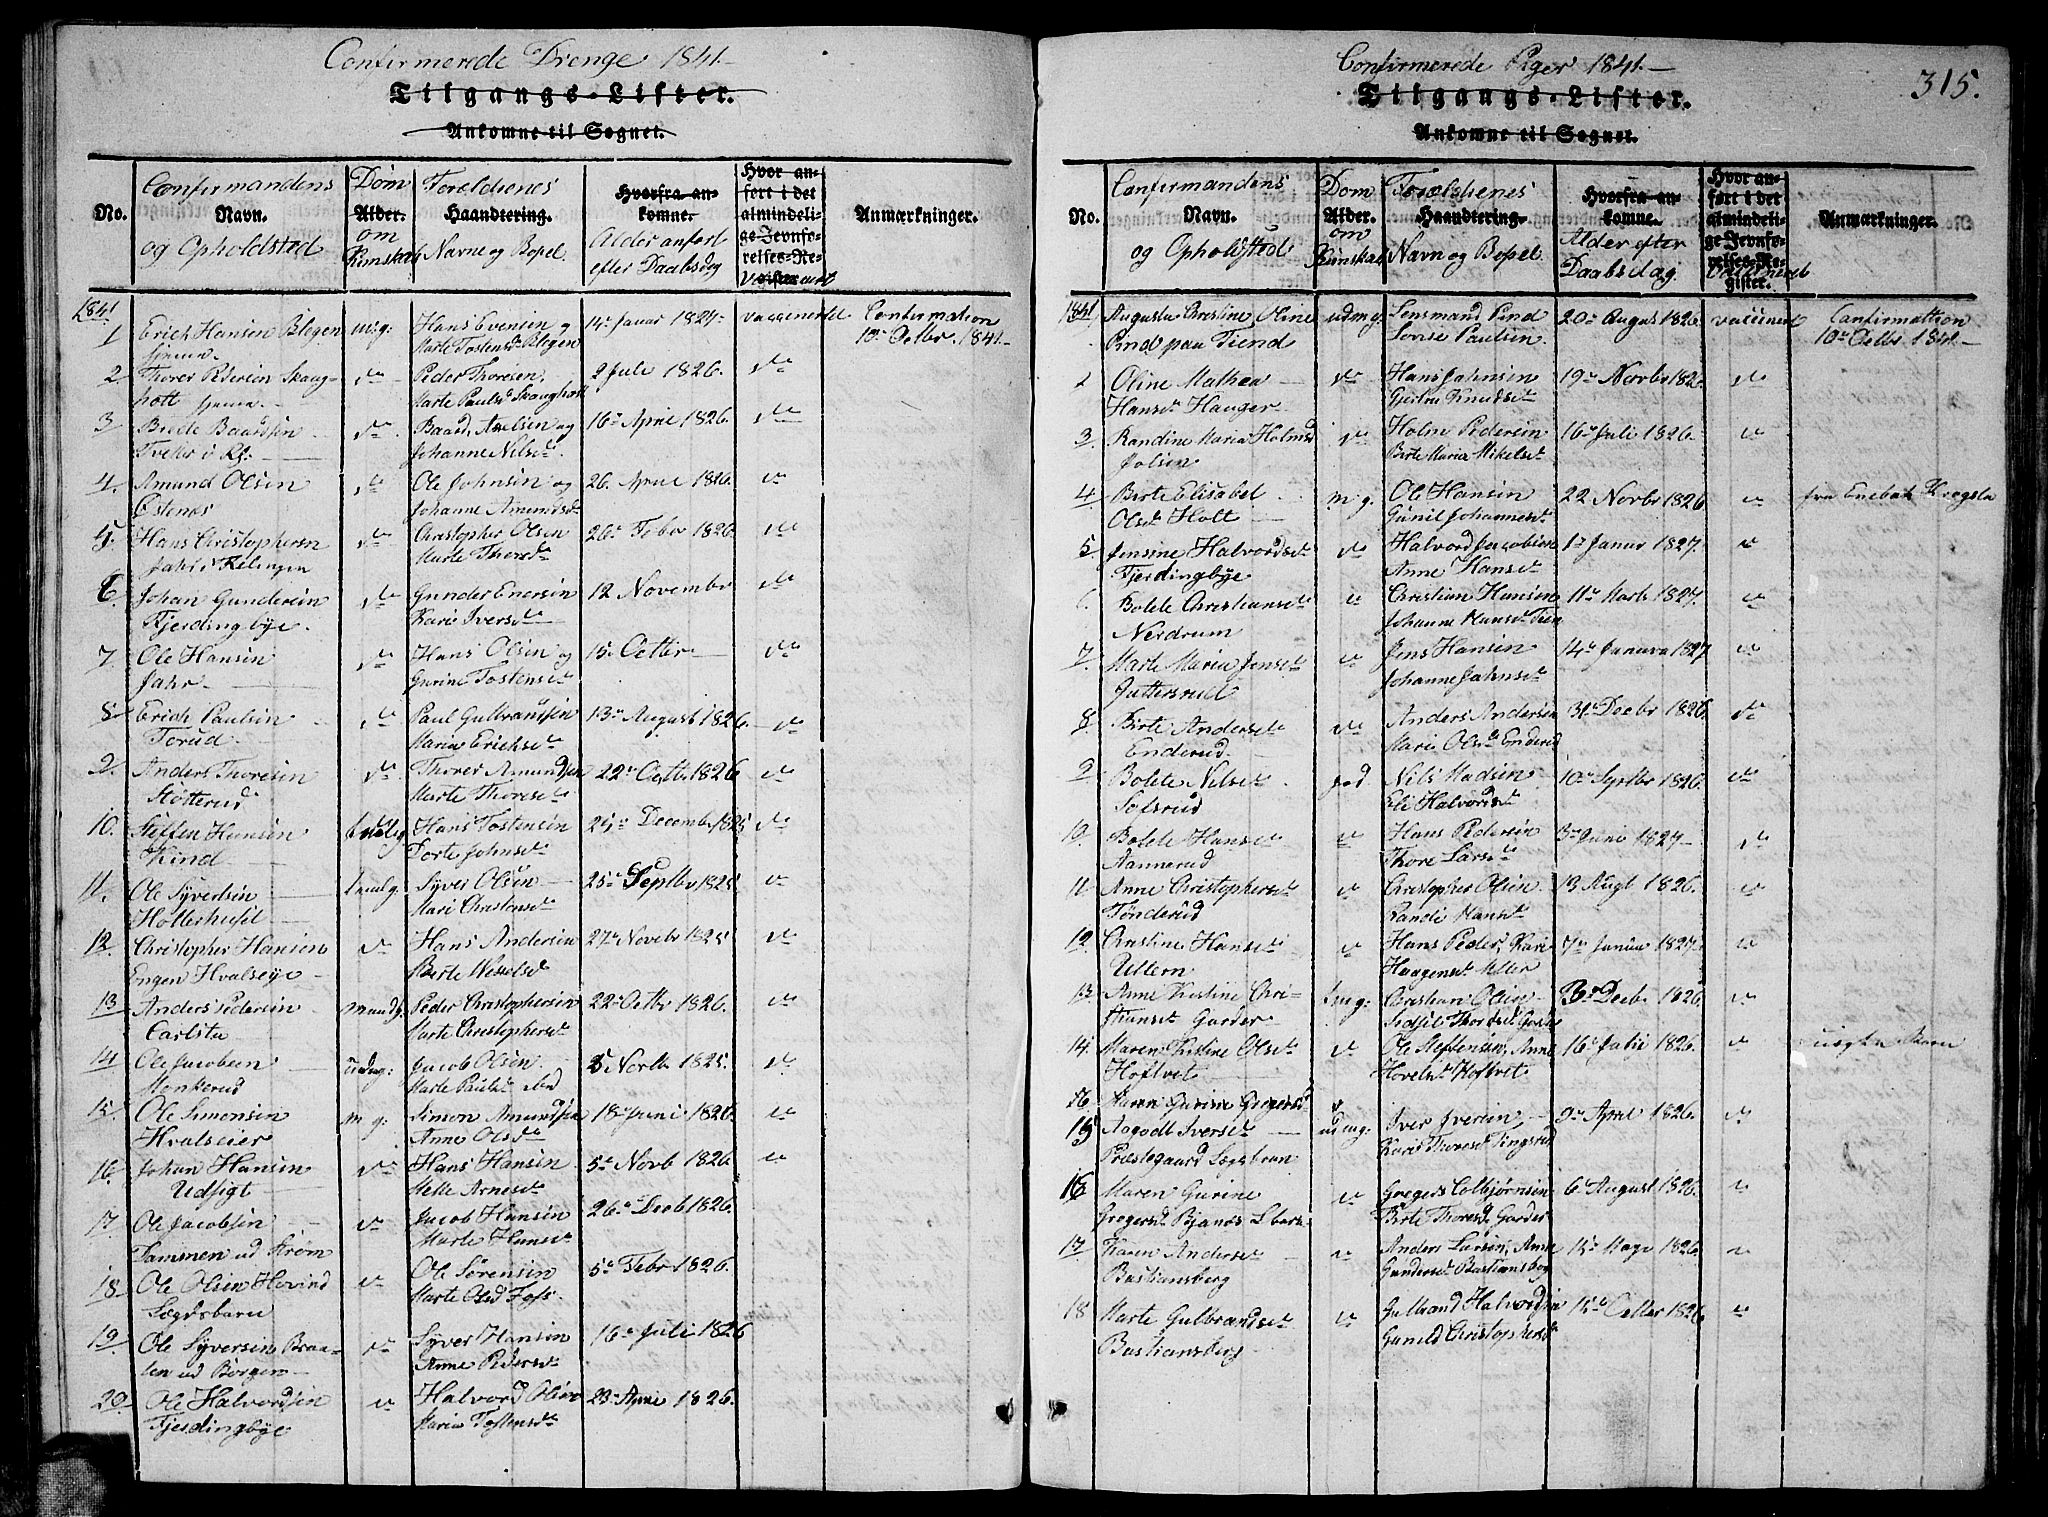 Confirmerede Drenge 1841.
Tilgangs-Lister.
Ankomne til Sognet.
No.
Confirmandens
Navn.
og Opholdsted
Dom
Alder.
om
Kundskab
Forældrenes
Haandtering.
Navne og Bopel.
Hvorfra an-
komne.
Alder anført
efter Daabsdag
Hvor an-
ført i det
almindeli-
ge Jevnfø-
relses-Re-
gister
Anmærkninger.
1841
1 Erich Hansen Blegen m.g: Hans Evensen og 14 Januar 1827 vaccinerede Confirmation
Marte Tostensd. Blegen 10 Octbr. 1841.
2 Thorer Pedersen Skaug- do Peder Thoresen, 2 Juli 1826. do
hott Marte Paulsd. Skaughott
3. Brede Baardsen do Baard Axelsen og 16 April 1826. do
Johanne Nilsd.
4. Amund Olsen do Ole Johnsen og 26. April 1826. do
Østenæs Johanne Amundsd.
5. Hans Christophersen do Christopher Olsen 26 Feber 1826. do
Marte Thoresd.
6. Johan Gundersen do Gunder Enersen 12 November do
Fjerdingbye. Kari Iversd.
7 Ole Hansen do Hans Olsen og 15 Octbr do
Jahr Gurine Tostensd.
8 Erich Paulsen do Paul Gulbrandsen 13 August 1826. do
Torud Maria Erichsd.
9. Anders Thoresen do Thorer Amundsen 22 Octbr 1826 do
Støtterud Marte Thoresd.
10. Steffen Hansen Hans Tostensen 25 Decemb. 1825 do
Kind Dorte Johnsd.
11. Ole Syversen Syver Olsen 25 Septbr 1825 do
Mari Christensd.
12 Christopher Hansen do Hans Andersen 27 Novebr 1825 do
Engen Hvalseye Berte Wesselsd.
13 Anders Pedersen Peder Christophersen 22 Octbr 1826. do
Carlsta Marte Christophersd.
14 Ole Jacobsen Jacob Olsen 5 Novbr 1825. do
Monkerud Marte Paulsd.
15. Ole Simonsen m g: Simon Amundsen 18 Juni 1826. do
Hvalseier Anne Olsd.
16. Johan Hansen do Hans Hansen 5 Novb 1826. do
Udsigt Helle Arnesd.
17. Ole Jacobsen do Jacob Hansen 26 Decb 1826.
Tamnen ud Strøm Marte Hansd.
18. Ole Olsen Hovind do Ole Sørensen 5 Febr 1826.
Lægdsbarn Marte Olsd Foss.
19. Ole Syversen Braa- do Syver Hansen 16 Juli 1826
ten ud Borgen Anne Pedersd.
20. Ole Halvordsen do Halvord Olsen 23 April 1826.
Fjerdingbye Maria Tostensd.
Confirmerede Piger 1841.
315.
Tilgangs-Lister.
Ankomne til Sognet.
No.
Confirmandens
Navn.
og Opholdsted
Dom
Alder.
om
Kundskab
Forældrenes
Haandtering.
Navn og Bopel
Hvorfra an-
komne.
Alder efter
Daabsdag.
Hvor an-
ført i det
almindeli-
ge Jevnfø-
relses-Re-
gister.
Anmærkninger.
1841 Augusta Christine Oline udm.g: Lensmand Pind 20 August 1826 vaccineret Confirmation
Pind paa Tiend Lovise Paulsen 10 Octbr 1841.
2 Oline Mathea do Hans Jahnsen 19 Novbr 1826. do
Hansd. Hauger Knudsd.
3 Randine Maria Holmsd do Holm Pedersen 16 Juli 1826. do
Berte Maria Mikelsd.
4 Berte Elisabet m.g. Ole Hansen 22 Novbr 1826 do fra Enebak
Olsd. Holt Gunil Johannesd.
5 Jensine Halvordsd. do Halvord Jacobsen 1 Januar 1827. do
Fjerdingbye Anne Hansd.
6. Bolete Christiansd. do Christian Hansen 11 Marts 1827. do
Nerdrum Johanne Hansd.
7. Marte Maria Jensd. do Jens Hansen 14 Janura 1827 do
Jattersrud Johanne Jahnsd.
8 Berte Andersd. do Anders Andersen 31 Decbr 1826. do
Enderud Mari Olsd. Enderud
9 Bolete Nilsd. god Nils Madsen 10 Septbr 1826. do
Solsrud Eli Halvordsd.
10. Bolete Hansd. do Hans Pedersen 3 Juni 1827 do
Aannerud Thore Larsd.
11. Anne Christophersd. do Christopher Olsen 13 Augt 1826. do
Tønderud Randi Hansd.
12 Christine Hansd. do Hans Peders, Kari 7 Janua 1827. do
Ullern Haagensd.
13 Anne Kirstine Chri- Christian Olsen 3 Decbr 1826. do
stiansd. Garder
14. Maren Kirstine Olsd. do Ole Steffensen, Anne 16 Juli 1826. do
Hoftvet Hovelsd. Hoftvet
16 Maren Gurine Gregersd
15 Aagodt Iversd. Iver Iversen 9 April 1826. do
Præstegaard Lægsbarn Kari Thoresd. Tingsrud
16 Maren Gurine do Gregers Colbjørnsen 6 August 1826. do
Gregersd. Bjanæs Berte Thoresd. Garder
17. Karen Andersd. do Anders Larsen, Anne 15 Mage 1826. do
Bastiansberg Gundersd. Bastiansberg
18 Marte Gulbrandsd. do Gulbrand Halvordsen 15 Octbr 1826. do
Bastiansberg Gunild Christophersd.